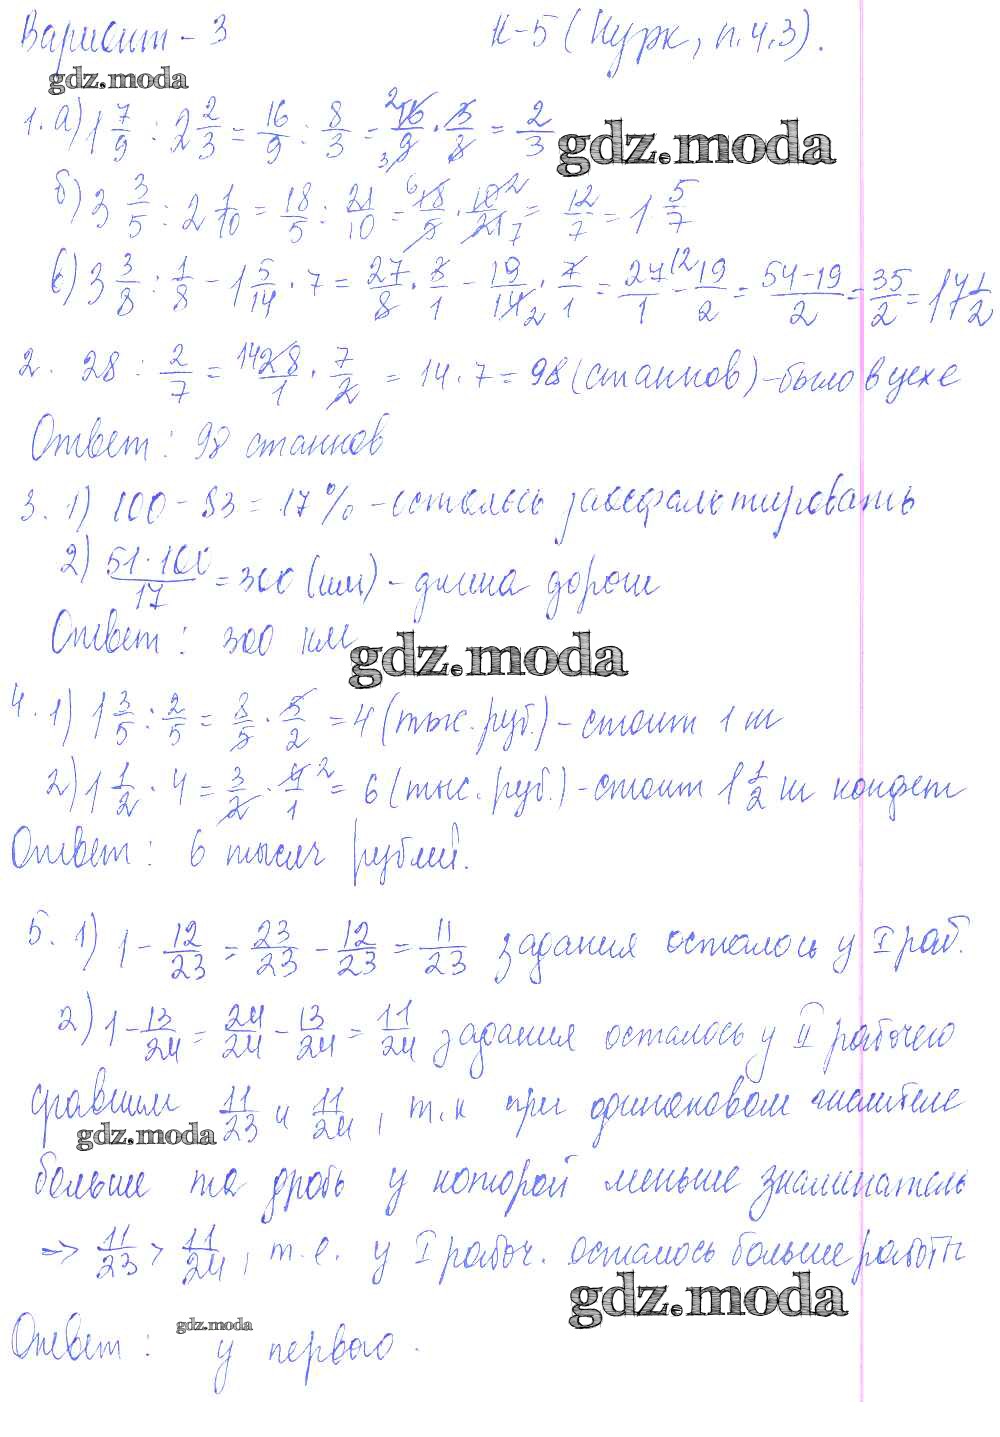 Вариант - 3 К-5 (Нурк, п.4,3).
gdz.moda
1. а) 1 7/9 : 2 2/3 = 16/9 : 8/3 = 16/9 · 3/8 = 2/3
gdz.moda
б) 3 3/5 : 2 1/10 = 18/5 : 21/10 = 18/5 · 10/21 = 12/7 = 1 5/7
в) 3 3/8 : 1/8 - 1 5/14 · 7 = 27/8 · 8/1 - 19/14 · 7/1 = 27/1 - 19/2 = 54-19/2 = 35/2 = 17 1/2
2. 28 : 2/7 = 28/1 · 7/2 = 14 · 7 = 98 (станков) - было в цехе
Ответ: 98 станков
3. 1) 100 - 83 = 17% - осталось заасфальтировать
2) 51·100/17 = 300 (км) - длина дороги
Ответ: 300 км
gdz.moda
4. 1) 1 3/5 : 2/5 = 8/5 · 5/2 = 4 (тыс. руб.) - стоит 1 т
2) 1 1/2 · 4 = 3/2 · 4/1 = 6 (тыс. руб.) - стоит 1 1/2 т конфет
Ответ: 6 тысяч рублей.
5. 1) 1 - 12/23 = 23/23 - 12/23 = 11/23 задания осталось у I раб.
2) 1 - 13/24 = 24/24 - 13/24 = 11/24 задания осталось у II рабочего
сравним 11/23 и 11/24, т.к при одинаковом числителе
gdz.moda
больше та дробь у которой меньше знаминатель
=> 11/23 > 11/24, т.е. у I рабоч. осталось больше работы
gdz.moda
gdz.moda
Ответ: у первого.